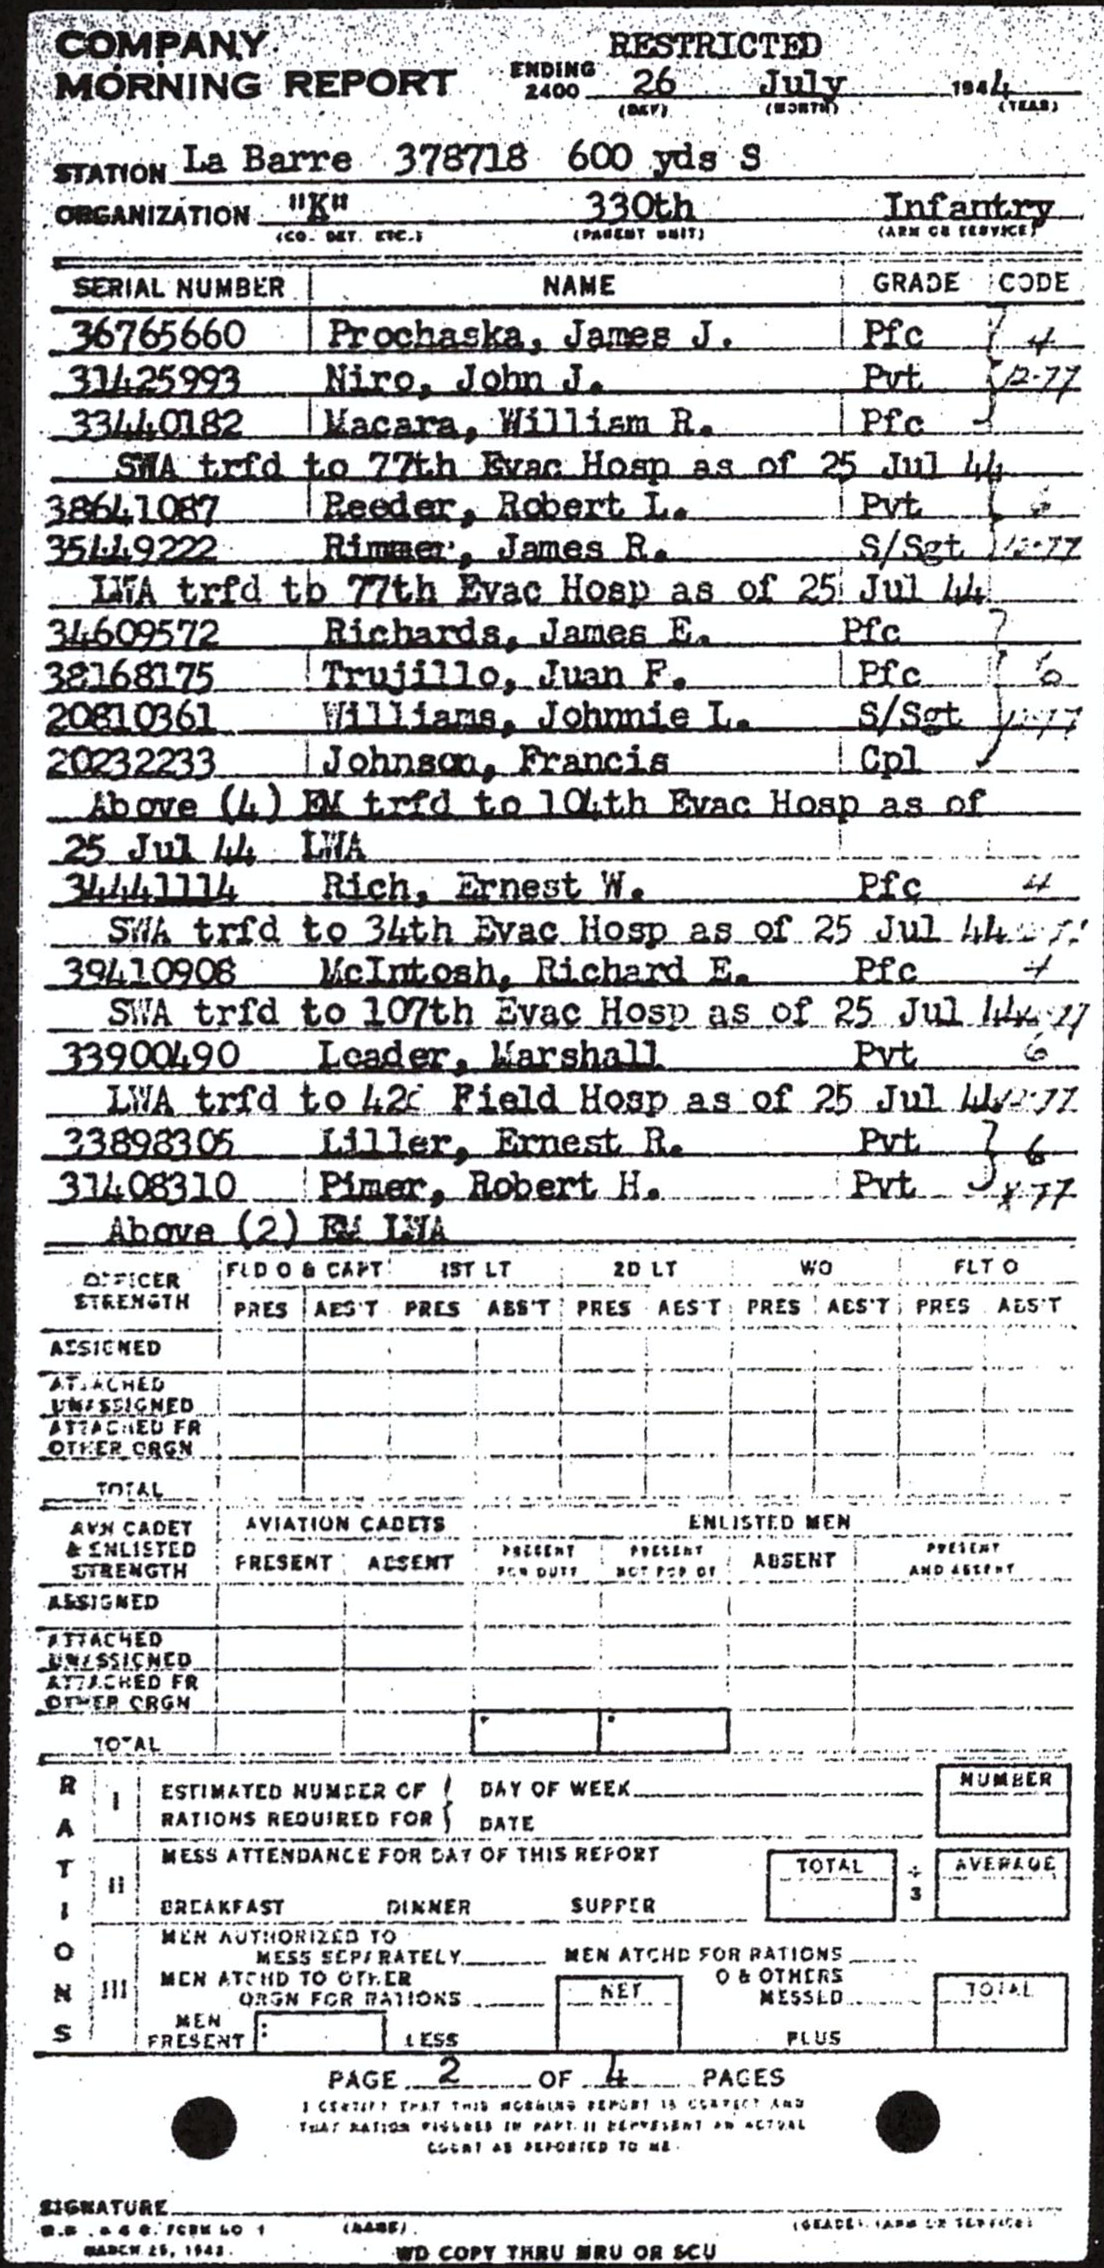 COMPANY RESTRICTED
MORNING REPORT ENDING 2400 26 July 1944
(DAY) (MONTH) (YEAR)
STATION La Barre 378718 600 yds S
ORGANIZATION "K" 330th Infantry
(CO. DET. ETC.) (PARENT UNIT) (ARM OR SERVICE)
SERIAL NUMBER NAME GRADE CODE
36765660 Prochaska, James J. Pfc 4
31425993 Niro, John J. Pvt 12-77
33440182 Macara, William R. Pfc
SWA trfd to 77th Evac Hosp as of 25 Jul 44
38641087 Reeder, Robert L. Pvt 6
35449222 Rimmer, James R. S/Sgt 12-77
LWA trfd to 77th Evac Hosp as of 25 Jul 44
34609572 Richards, James E. Pfc
38168175 Trujillo, Juan F. Pfc 6
20810361 Williams, Johnnie L. S/Sgt 12-77
20232233 Johnson, Francis Cpl
Above (4) EM trfd to 104th Evac Hosp as of
25 Jul 44 LWA
34441114 Rich, Ernest W. Pfc 4
SWA trfd to 34th Evac Hosp as of 25 Jul 44
39410908 McIntosh, Richard E. Pfc 4
SWA trfd to 107th Evac Hosp as of 25 Jul 44
33900490 Leader, Marshall Pvt 6
LWA trfd to 42d Field Hosp as of 25 Jul 44 12-77
33898305 Liller, Ernest R. Pvt 6
31408310 Pimer, Robert H. Pvt 8-77
Above (2) EM LWA
OFFICER STRENGTH FLD O & CAPT 1ST LT 2D LT WO FLT O
PRES ABS'T PRES ABS'T PRES ABS'T PRES ABS'T PRES ABS'T
ASSIGNED
ATTACHED
UNASSIGNED
ATTACHED FR
OTHER ORGN
TOTAL
AVN CADET & ENLISTED STRENGTH AVIATION CADETS ENLISTED MEN
PRESENT ABSENT PRESENT FOR DUTY PRESENT NOT FOR DY ABSENT PRESENT AND ABSENT
ASSIGNED
ATTACHED
UNASSIGNED
ATTACHED FR
OTHER ORGN
TOTAL
RATIONS
I ESTIMATED NUMBER OF DAY OF WEEK NUMBER
RATIONS REQUIRED FOR DATE
II MESS ATTENDANCE FOR DAY OF THIS REPORT TOTAL ÷ 3 AVERAGE
BREAKFAST DINNER SUPPER
III MEN AUTHORIZED TO
MESS SEPARATELY MEN ATCHD FOR RATIONS
MEN ATCHD TO OTHER NET O & OTHERS TOTAL
ORGN FOR RATIONS MESSED
MEN PRESENT LESS PLUS
PAGE 2 OF 4 PAGES
I CERTIFY THAT THIS MORNING REPORT IS CORRECT AND
THAT RATION FIGURES IN PART II REPRESENT AN ACTUAL
COUNT AS REPORTED TO ME
SIGNATURE
W.D., A.G.O. FORM NO 1 (NAME) (GRADE) (ARM OR SERVICE)
MARCH 25, 1943 WD COPY THRU MRU OR SCU